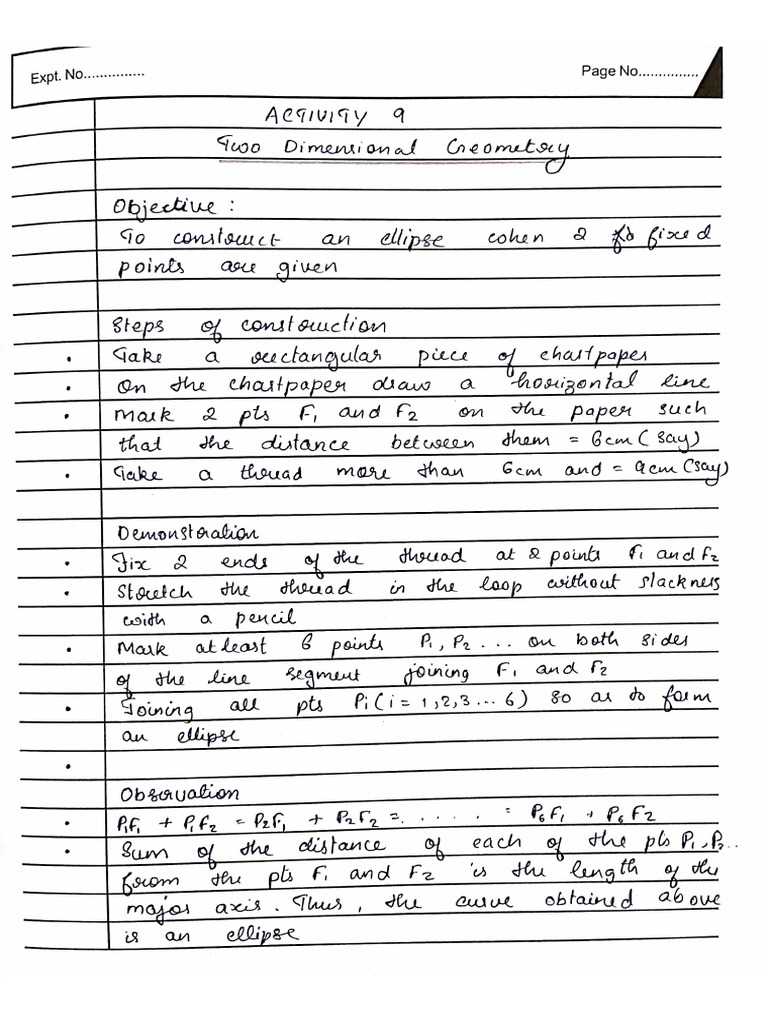 Expt. No............... Page No...............
ACTIVITY 9
Two Dimensional Geometry
Objective :
To construct an ellipse when 2 fixed
points are given
Steps of construction
• Take a rectangular piece of chartpaper
• On the chartpaper draw a horizontal line
• Mark 2 pts F₁ and F₂ on the paper such
that the distance between them = 6cm (say)
• Take a thread more than 6cm and = 9cm (say)
Demonstration
• Fix 2 ends of the thread at 2 points F₁ and F₂
• Stretch the thread in the loop without slackness
with a pencil
• Mark atleast 6 points P₁, P₂ ... on both sides
of the line segment joining F₁ and F₂
• Joining all pts Pi (i = 1,2,3... 6) so as to form
an ellipse
•
Observation
• P₁F₁ + P₁F₂ = P₂F₁ + P₂F₂ = . . . . . = P₆F₁ + P₆F₂
• Sum of the distance of each of the pts P₁, P₂...
from the pts F₁ and F₂ is the length of the
major axis. Thus, the curve obtained above
is an ellipse